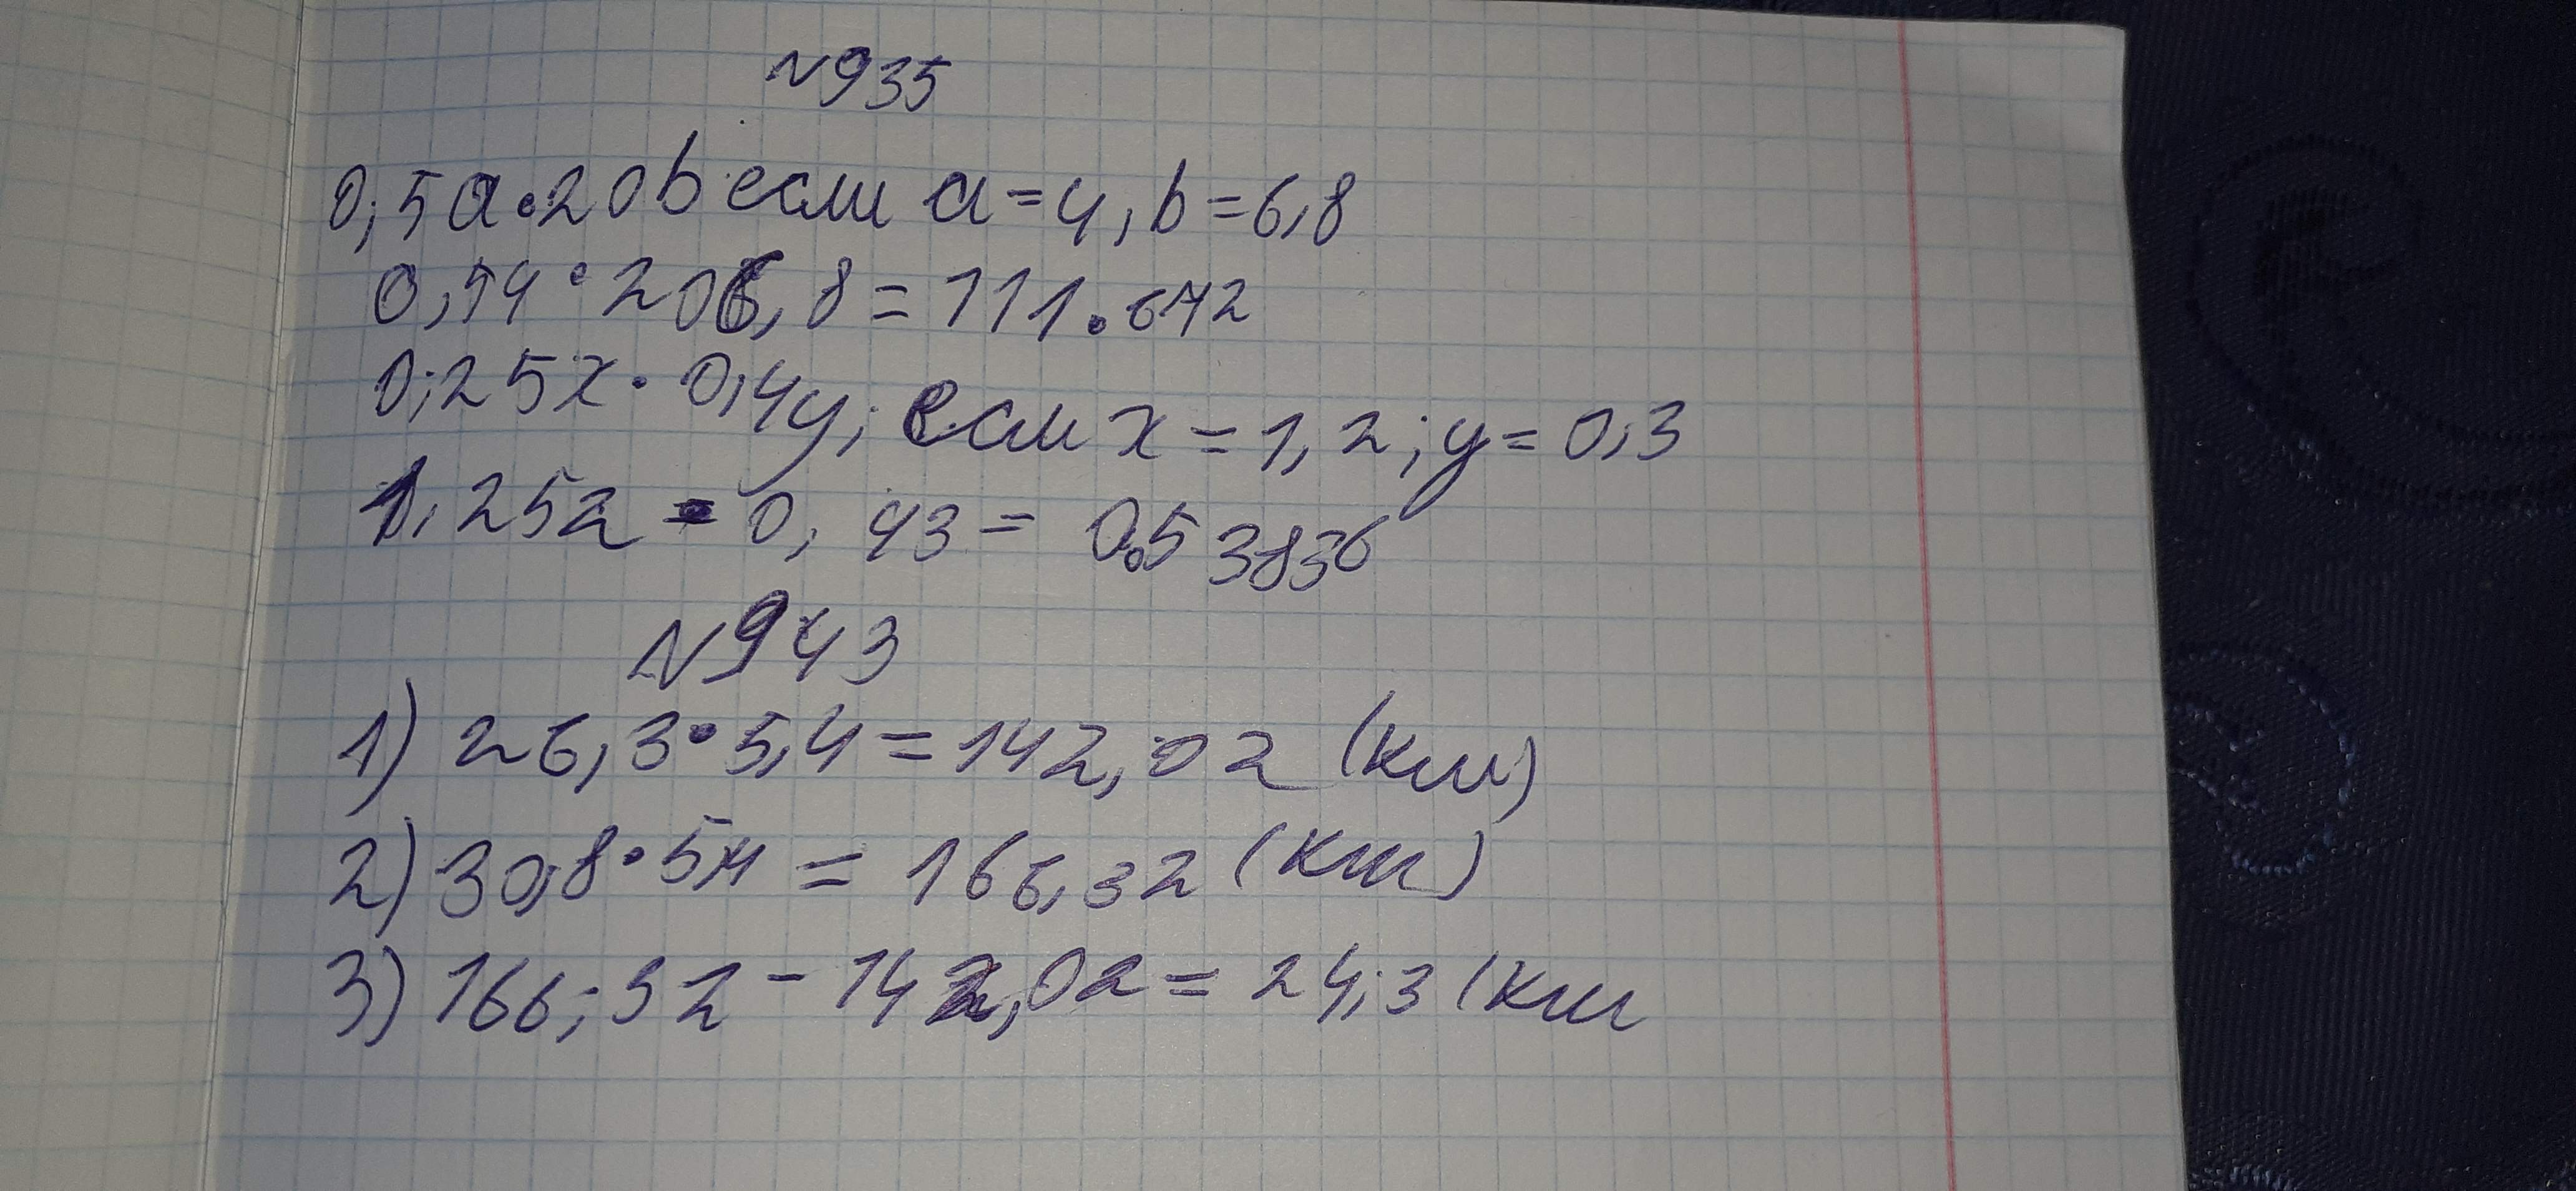 N935
0,5a•20b если a=4, b=6,8
0,54•206,8=111.672
0,25x•0,4y; если x=1,2; y=0,3
1,252•0,43=0.53836
N943
1) 26,3•5,4=142,02 (км)
2) 30,8•5,4=166,32 (км)
3) 166,32-142,02=24,3 (км